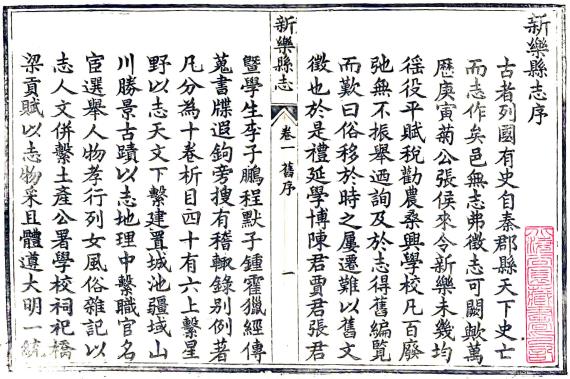 新樂縣志序
古者列國有史自秦郡縣天下史亡
而志作矣邑無志弗徵志可闕歟萬
厯庚寅菊公張侯來令新樂未幾均
徭役平賦稅勸農桑興學校凡百廢
弛無不振舉廼詢及於志得舊編覽
而歎曰俗移於時之屢遷難以舊文
徵也於是禮延學博陳君賈君張君
新樂縣志
卷一 舊序
一
暨學生李子鵬程默子鍾霍獵經傳
蒐書牒遐鉤旁搜有稽輙錄別例著
凡分為十卷析目四十有六上繫星
野以志天文下繫建置城池疆域山
川勝景古蹟以志地理中繫職官名
宦選舉人物孝行列女風俗雜記以
志人文併繫土產公署學校祠祀橋
梁貢賦以志物采且體遵大明一統